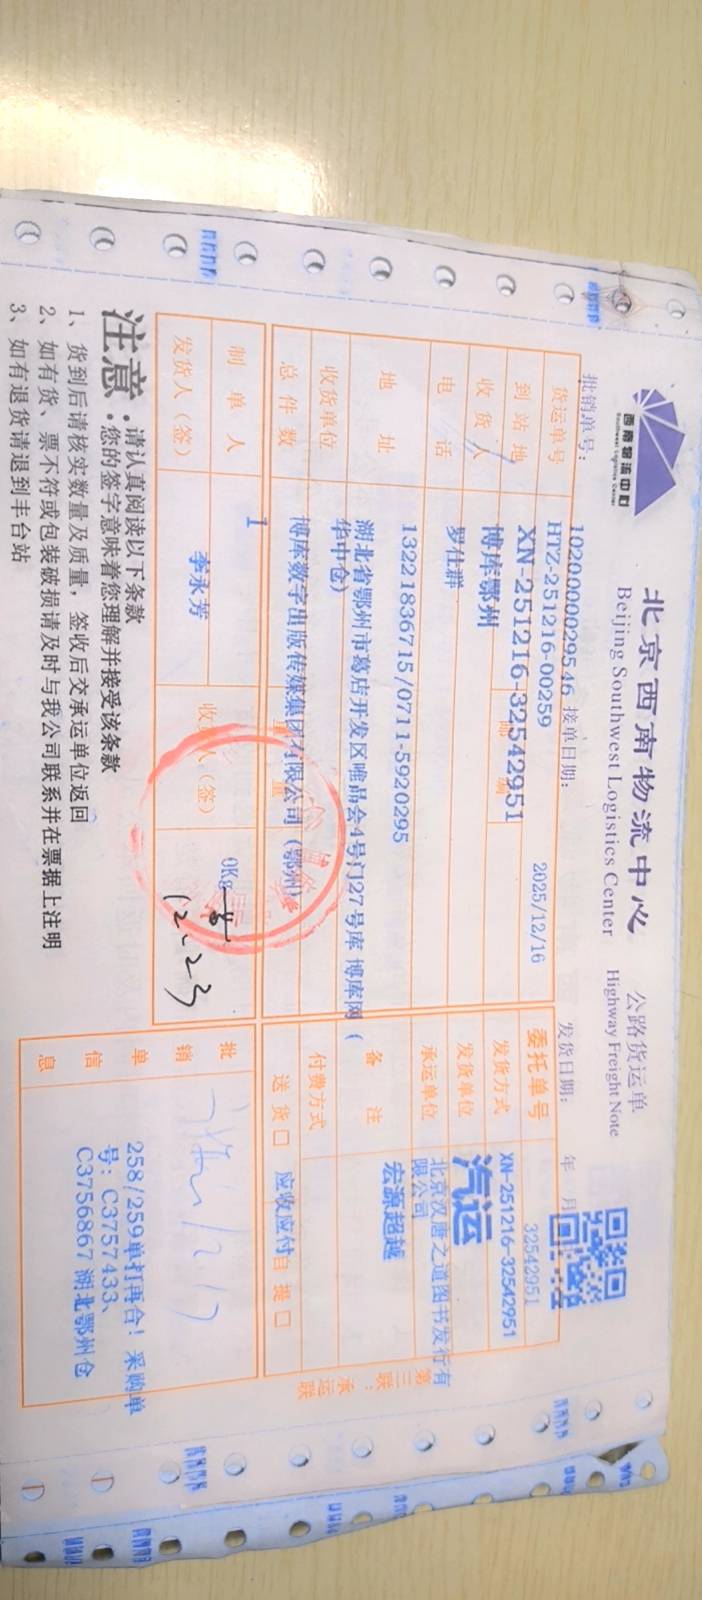 西南物流中心
Southwest Logistics Center
北京西南物流中心 公路货运单
Beijing Southwest Logistics Center Highway Freight Note
批销单号: 1020000029546 接单日期: 2025/12/16 发货日期: 年 月
货运单号 HYZ-251216-00259 委托单号 32542951
XN-251216-32542951
到站地 XN-251216-32542951 邮编 发货方式 汽运
收货人 博库鄂州 发货单位 北京汉唐之道图书发行有限公司
罗仕群
电话 13221836715/0711-5920295 承运单位 宏源超越
地址 湖北省鄂州市葛店开发区唯品会4号门27号库 博库网(华中仓) 备注
收货单位 博库数字出版传媒集团有限公司(鄂州) 付费方式
总件数 1 重量 0Kg 送货□ 应收应付 自提□
制单人 李永芳 收货人(签)
12.23
发货人(签)
批销单信息 258/259单打再合!采购单号:C3757433、C3756867 湖北鄂州仓
第三联:承运联
注意:
请认真阅读以下条款
您的签字意味着您理解并接受该条款
1、货到后请核实数量及质量,签收后交承运单位返回
2、如有货、票不符或包装破损请及时与我公司联系并在票据上注明
3、如有退货请退到丰台站